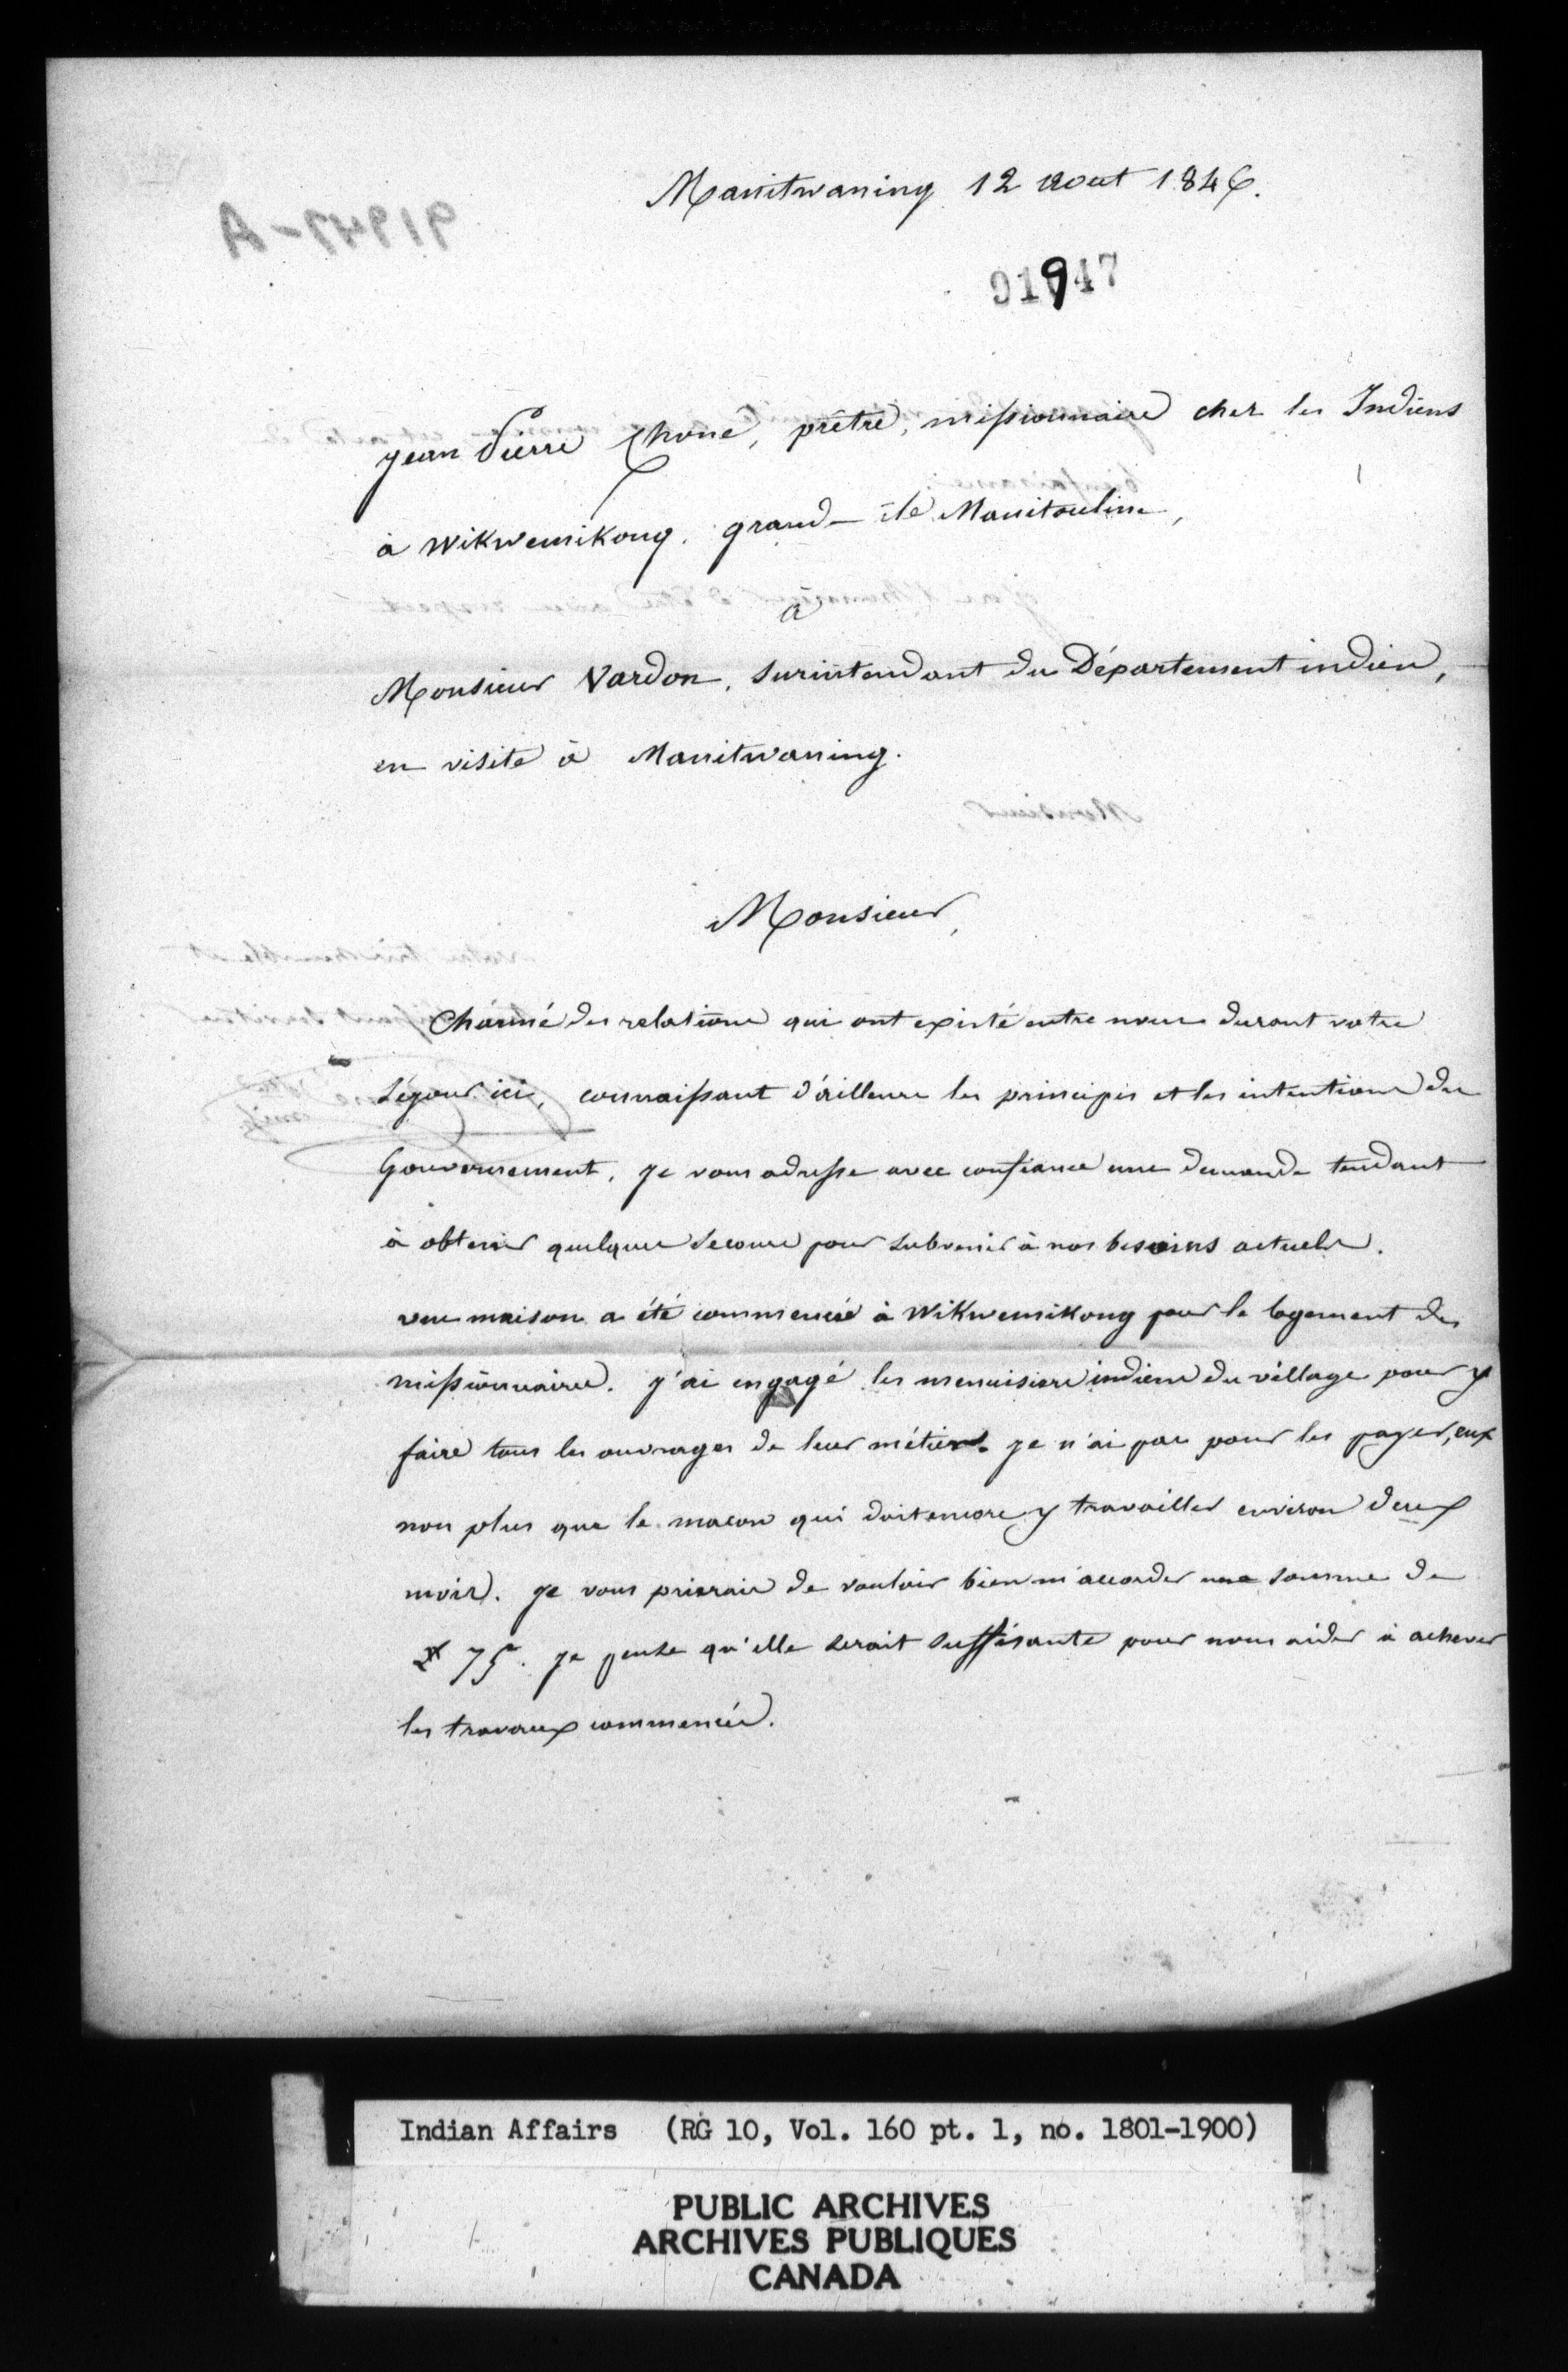 Manitwaning 12 aout 1846.
91947
91947-A
Jean Pierre Choné, prêtre, missionnaire chez les Indiens
à Wikwemikong, grande île Manitouline,
à
Monsieur Vardon, surintendant du Département indien,
en visite à Manitwaning.
Monsieur,
Charmé des relations qui ont existé entre nous durant votre
séjour ici, connaissant d'ailleurs les principes et les intentions du
Gouvernement, je vous adresse avec confiance une demande tendant
à obtenir quelque secours pour subvenir à nos besoins actuels.
une maison a été commencée à Wikwemikong pour le logement des
missionnaires. j'ai engagé les menuisiers indiens du village pour y
faire tous les ouvrages de leur métier. je n'ai pas pour les payer, eux
non plus que le macon qui doit encore y travailler environ deux
mois. je vous prierais de vouloir bien m'accorder une somme de
£ 75. je pense qu'elle serait suffisante pour nous aider à achever
les travaux commencés.
Indian Affairs (RG 10, Vol. 160 pt. 1, no. 1801-1900)
PUBLIC ARCHIVES
ARCHIVES PUBLIQUES
CANADA